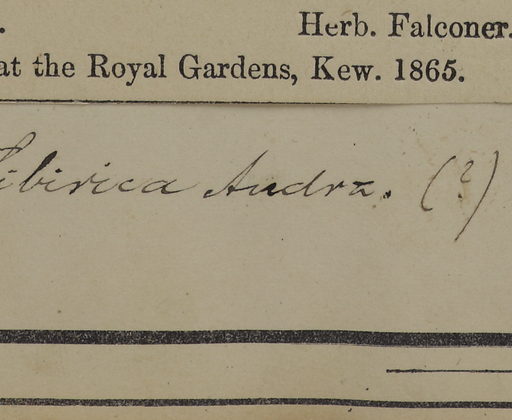 . Herb. Falconer.
at the Royal Gardens, Kew. 1865.
Sibirica Andrz. (?)